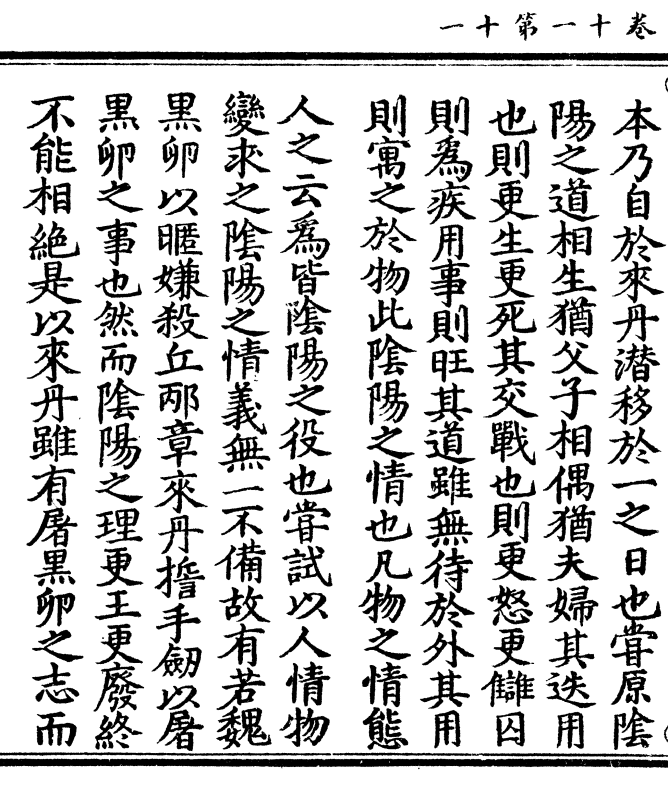 卷十一第十一
本乃自於來丹潛移於一之日也嘗原陰
陽之道相生猶父子相偶猶夫婦其迭用
也則更生更死其交戰也則更怒更讎囚
則爲疾用事則旺其道雖無待於外其用
則寓之於物此陰陽之情也凡物之情態
人之云爲皆陰陽之役也嘗試以人情物
變求之陰陽之情義無一不備故有若魏
黑卵以暱嫌殺丘邴章來丹擔手劒以屠
黑卵之事也然而陰陽之理更王更廢終
不能相絶是以來丹雖有屠黑卵之志而